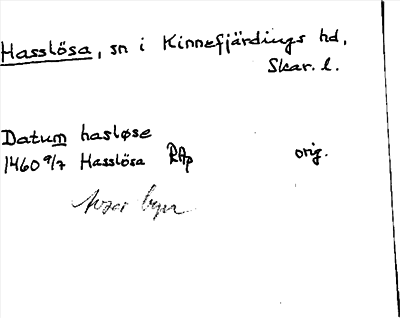 Hasslösa, sn i Kinnefjärdings hd,
Skar. l.
Datum hasløse
1460 9/7 Hasslösa RAp orig.